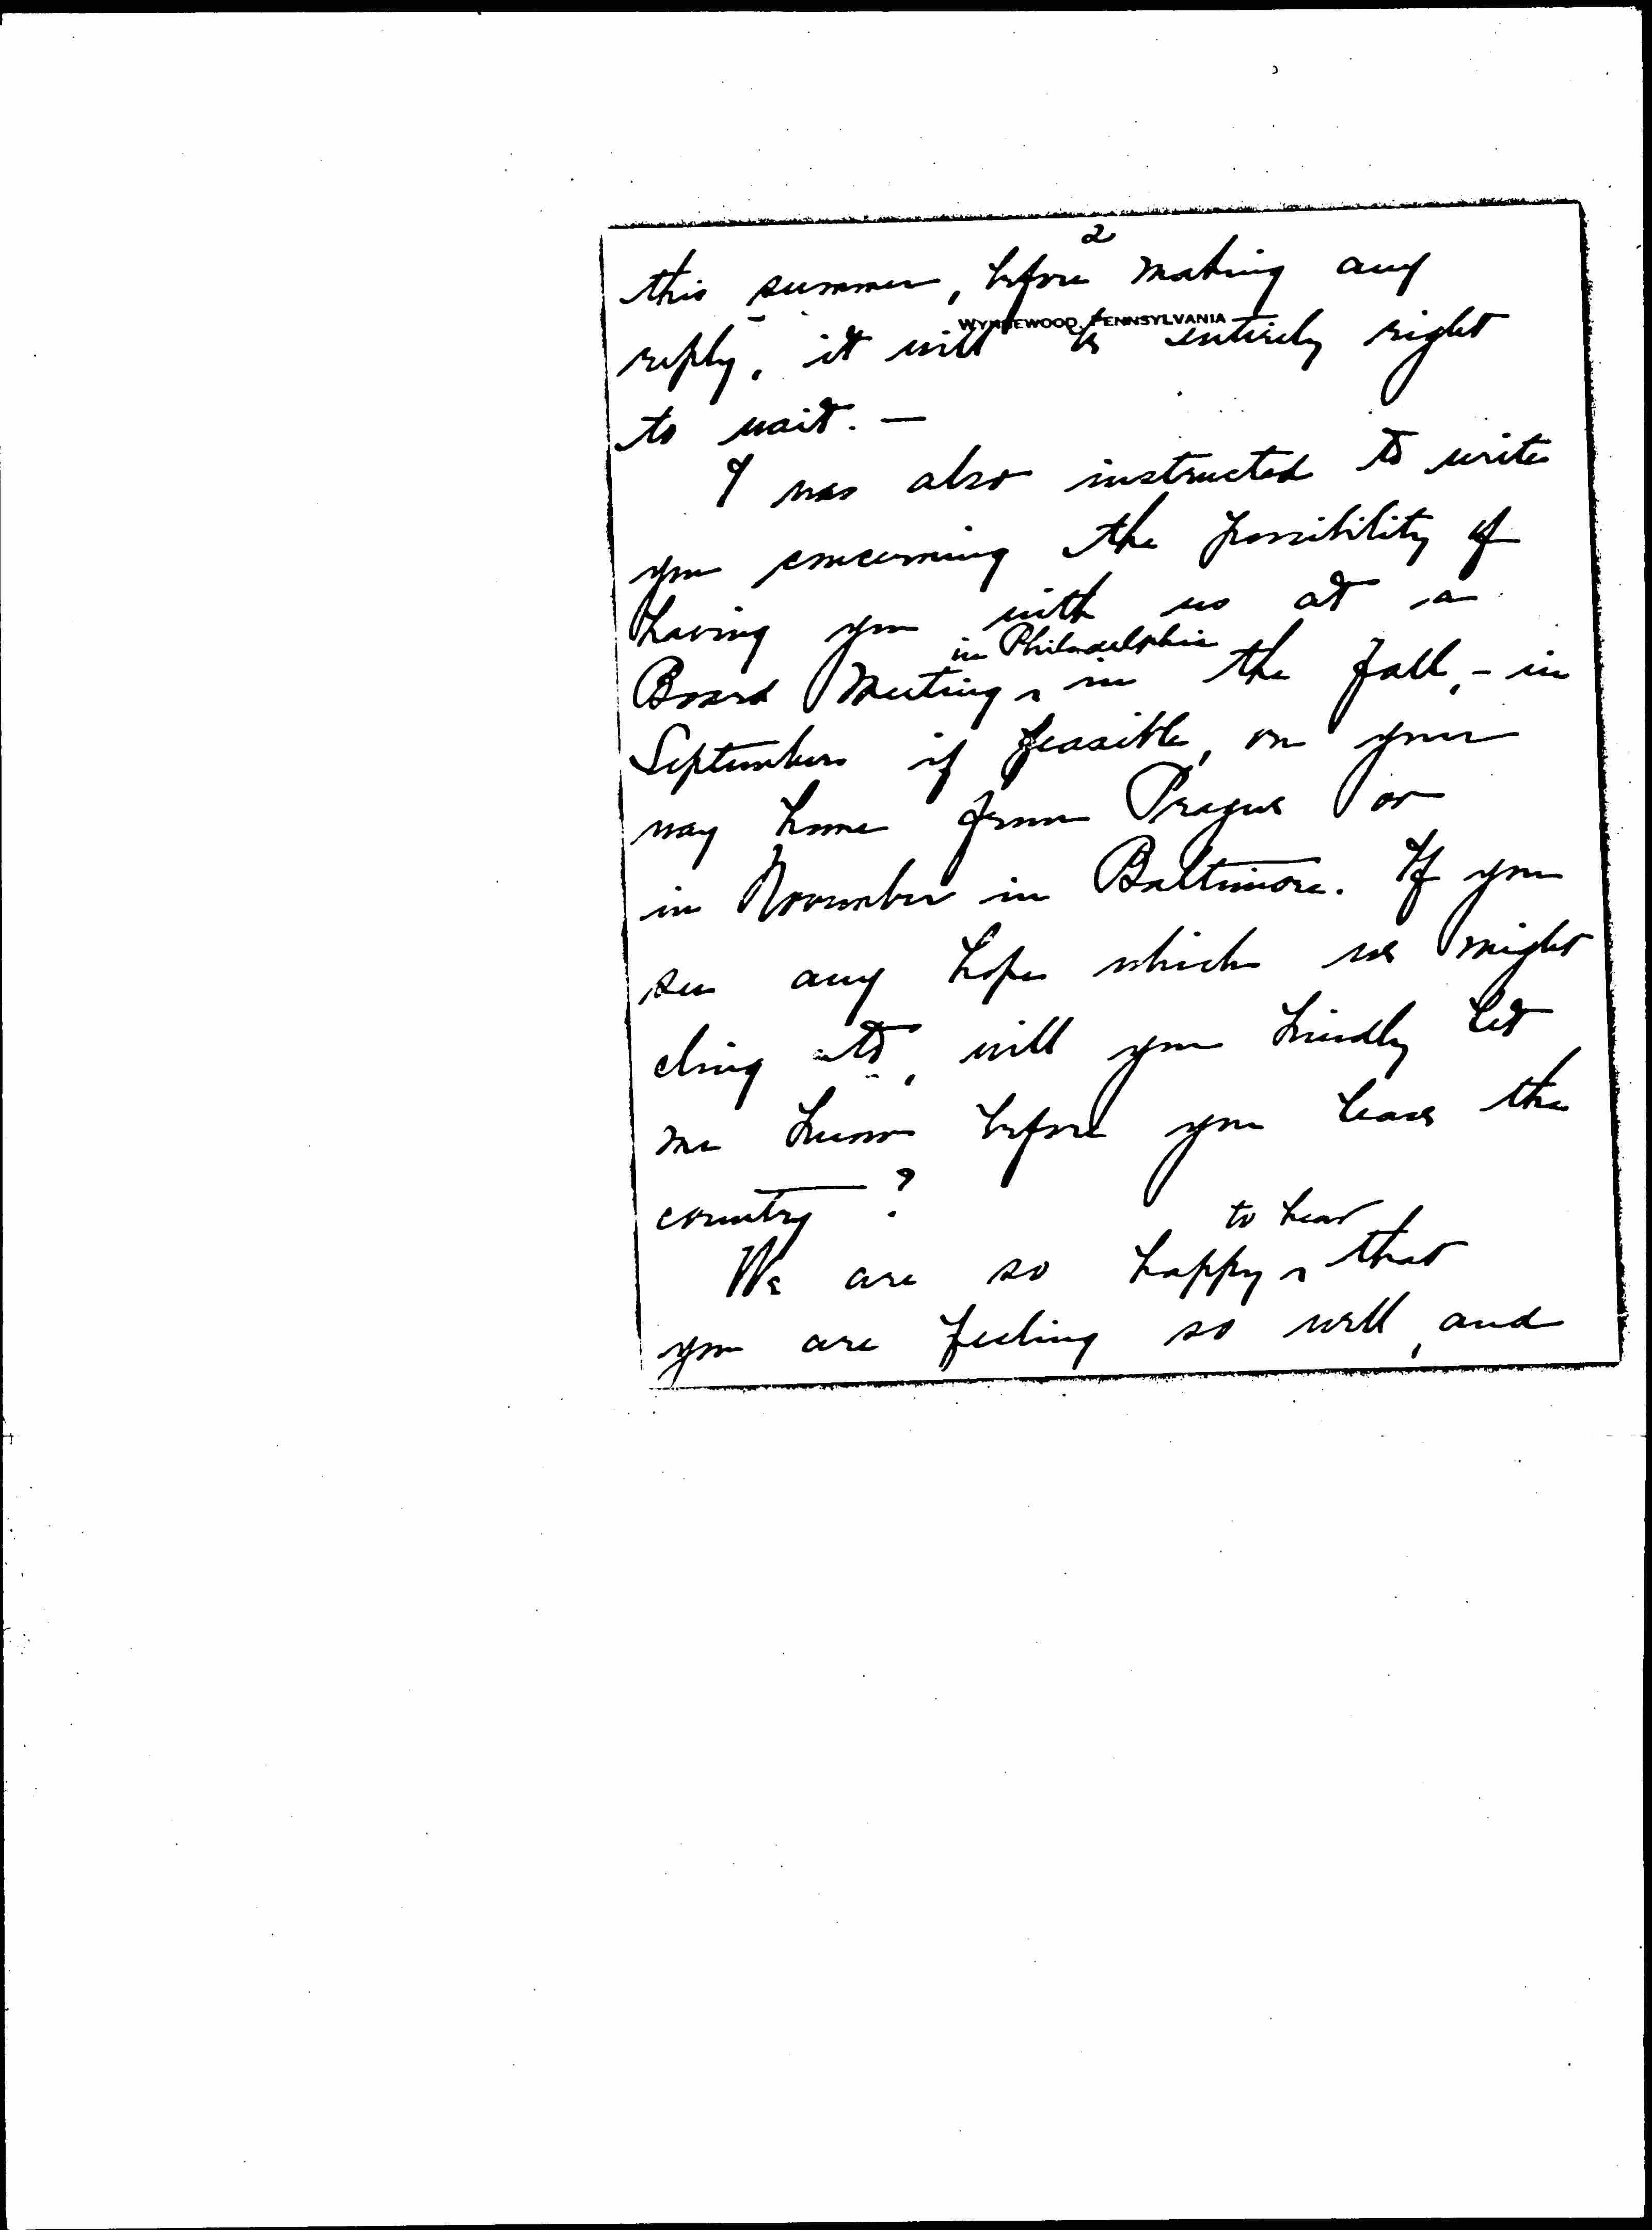 2
this summer, before making any
WYNNEWOOD, PENNSYLVANIA
reply, it will be entirely right
to wait. —
I was also instructed to write
you concerning the possibility of
having you with us at a
in Philadelphia
Board Meeting ^ in the fall, - in
September if feasible, on your
way home from Prague or
in November in Baltimore. If you
see any hope which we might
cling to, will you kindly let
me know before you leave the
country?
to hear
We are so happy ^ that
you are feeling so well, and